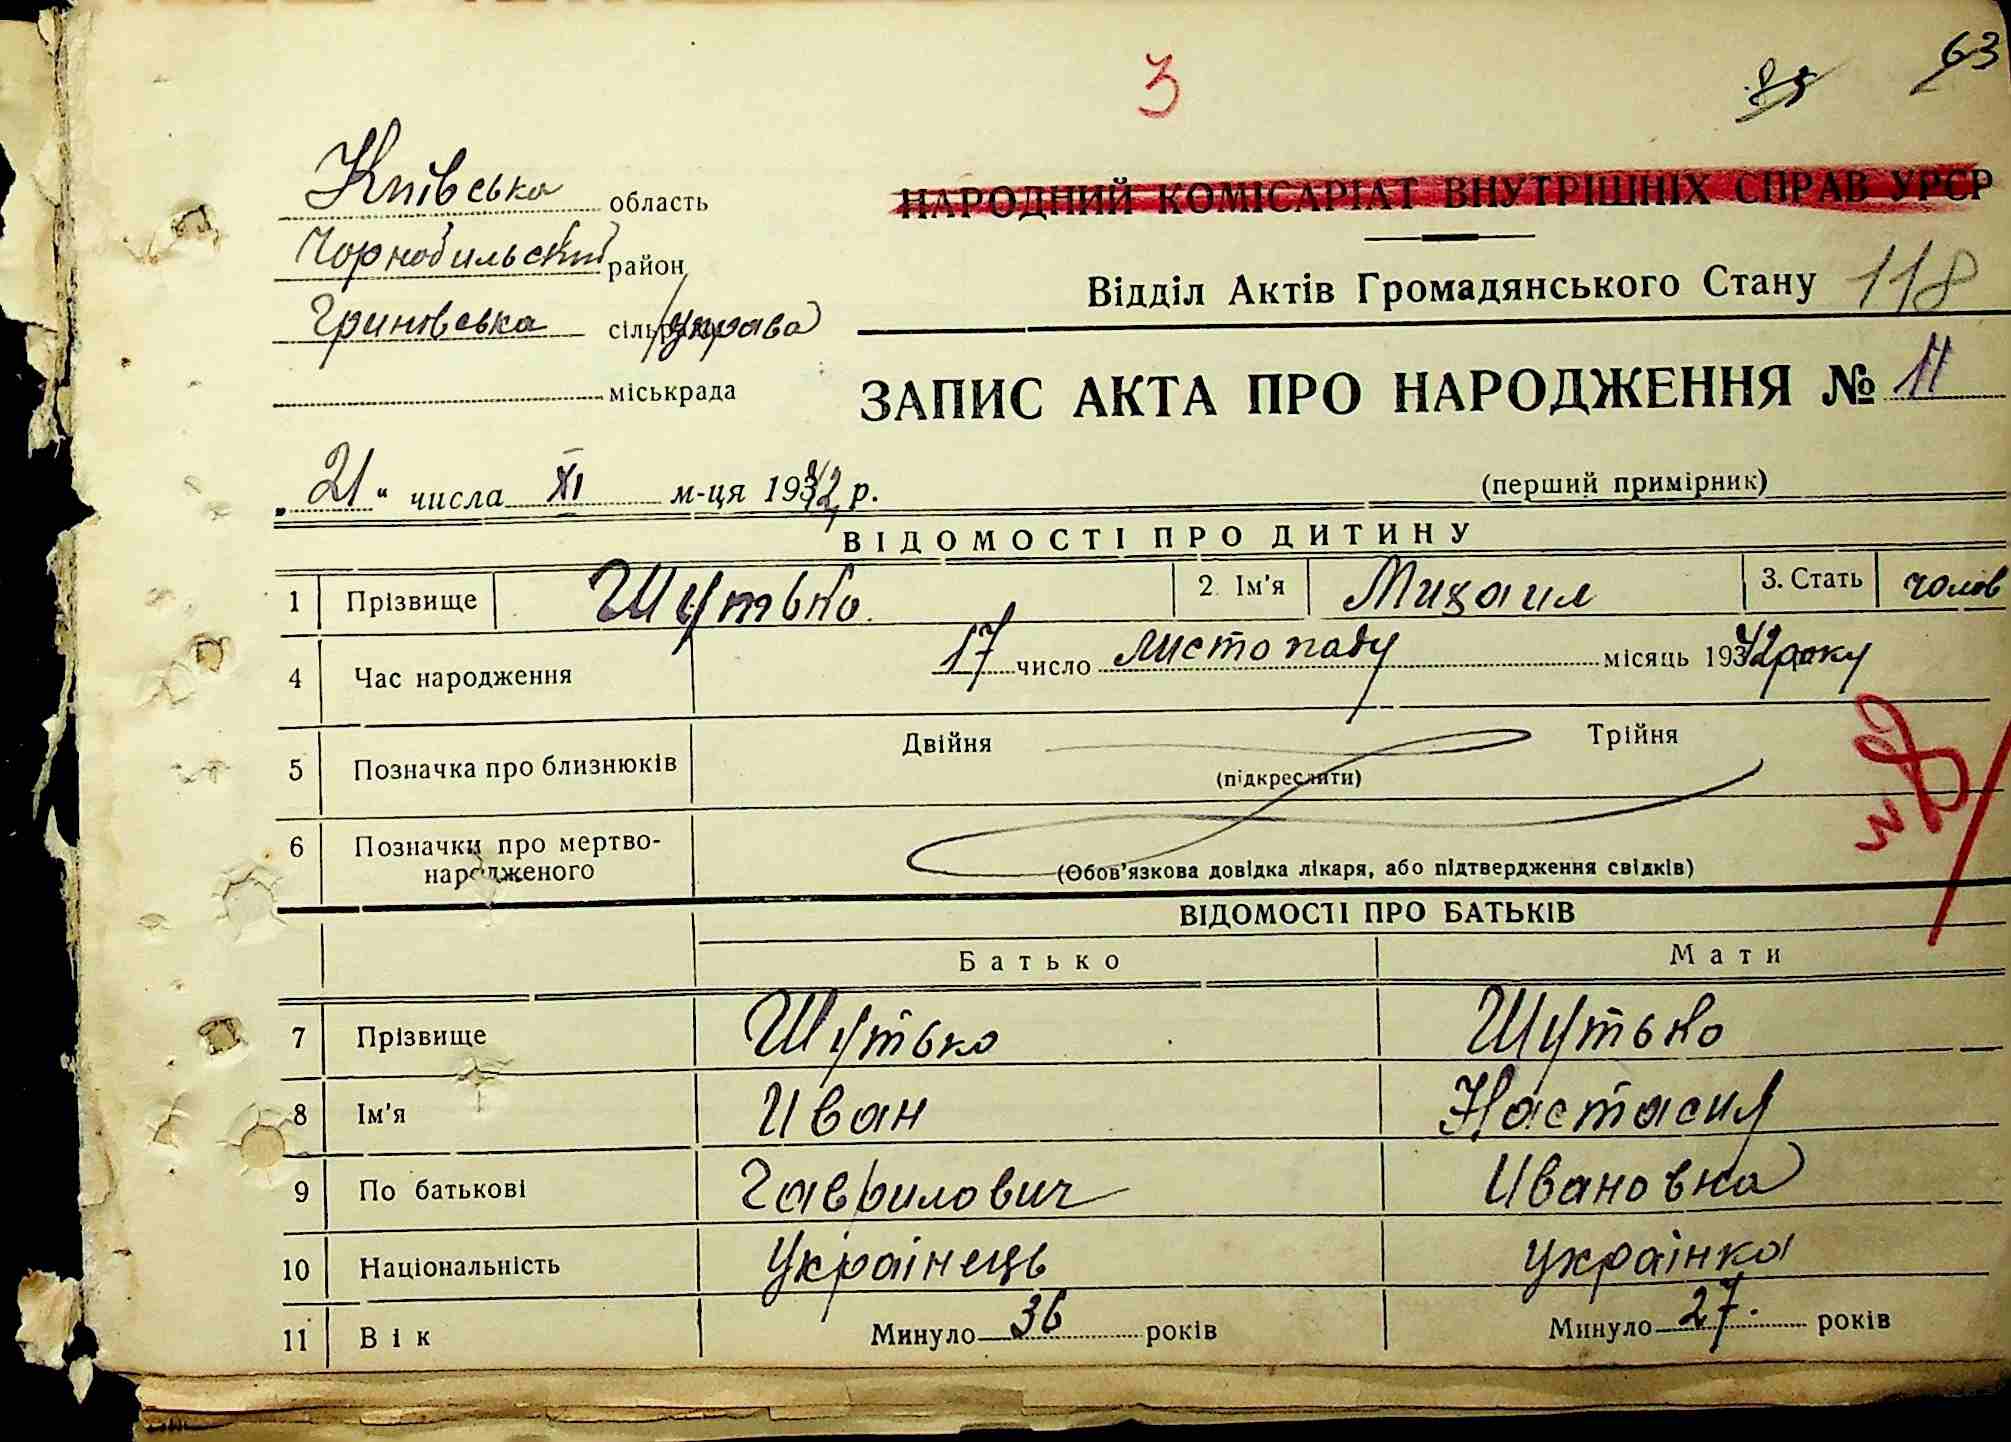 3
63
Київська область
НАРОДНИЙ КОМІСАРІАТ ВНУТРІШНІХ СПРАВ УРСР
Чорнобильский район
Відділ Актів Громадянського Стану 118
Гриновська сільуправа
міськрада
ЗАПИС АКТА ПРО НАРОДЖЕННЯ № 11
„21“ числа XI м-ця 1942 р.
(перший примірник)
ВІДОМОСТІ ПРО ДИТИНУ
1 Прізвище Шутько 2. Ім'я Михаил 3. Стать чолов
4 Час народження 17 число листопаду місяць 1942 року
5 Позначка про близнюків Двійня Трійня
(підкреслити)
6 Позначки про мертво-
народженого
(Обов'язкова довідка лікаря, або підтвердження свідків)
ВІДОМОСТІ ПРО БАТЬКІВ
Батько Мати
7 Прізвище Шутько Шутько
8 Ім'я Иван Настасия
9 По батькові Гаврилович Ивановна
10 Національність Українець українка
11 Вік Минуло 36 років Минуло 27. років